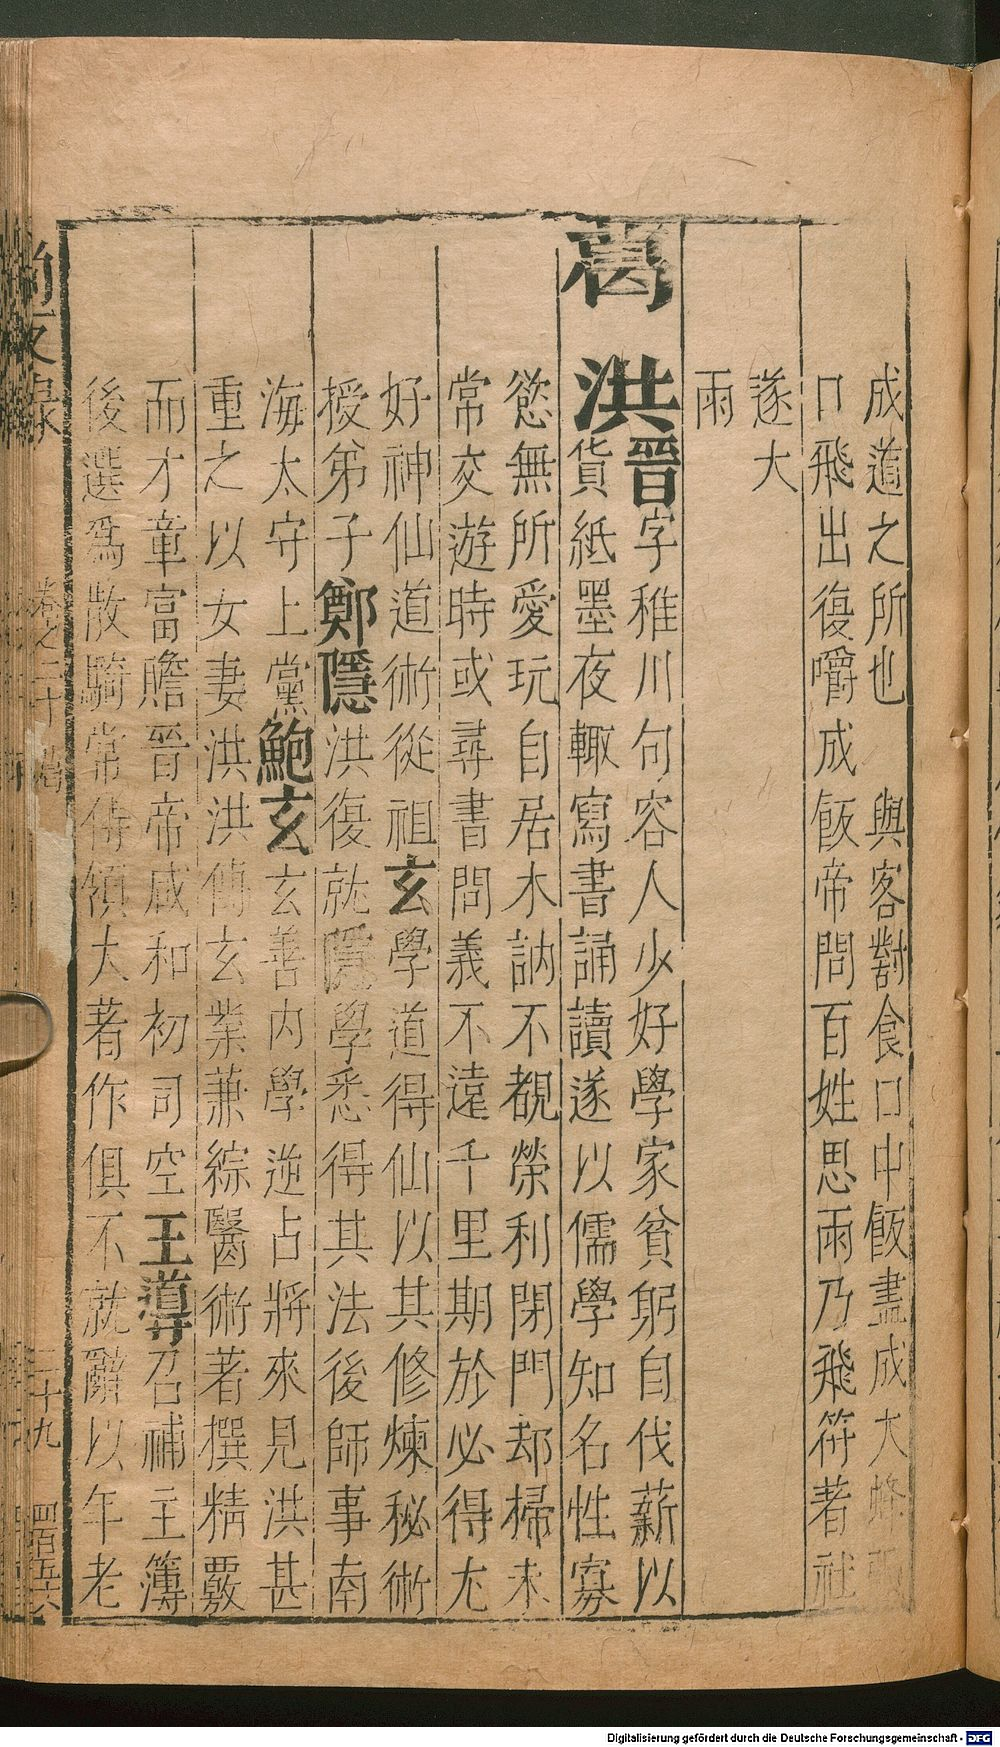 成道之所也　與客對食口中飯盡成大蜂
口飛出復嚼成飯帝問百姓思雨乃飛符著社
遂大
雨
葛洪晉字稚川句容人少好學家貧躬自伐薪以
貨紙墨夜輙寫書誦讀遂以儒學知名性寡
慾無所愛玩自居木訥不覩榮利閉門却掃未
常交遊時或尋書問義不遠千里期於必得尢
好神仙道術從祖玄學道得仙以其修煉秘術
授弟子鄭隱洪復就隱學悉得其法後師事南
海太守上黨鮑玄玄善内學逆占將來見洪甚
重之以女妻洪洪傳玄業兼綜醫術著撰精覈
而才章富贍晉帝咸和初司空王導召補主簿
後選爲散騎常侍領大著作俱不就辭以年老
卷之二十
三十九
四百五六
Digitalisierung gefördert durch die Deutsche Forschungsgemeinschaft - DFG